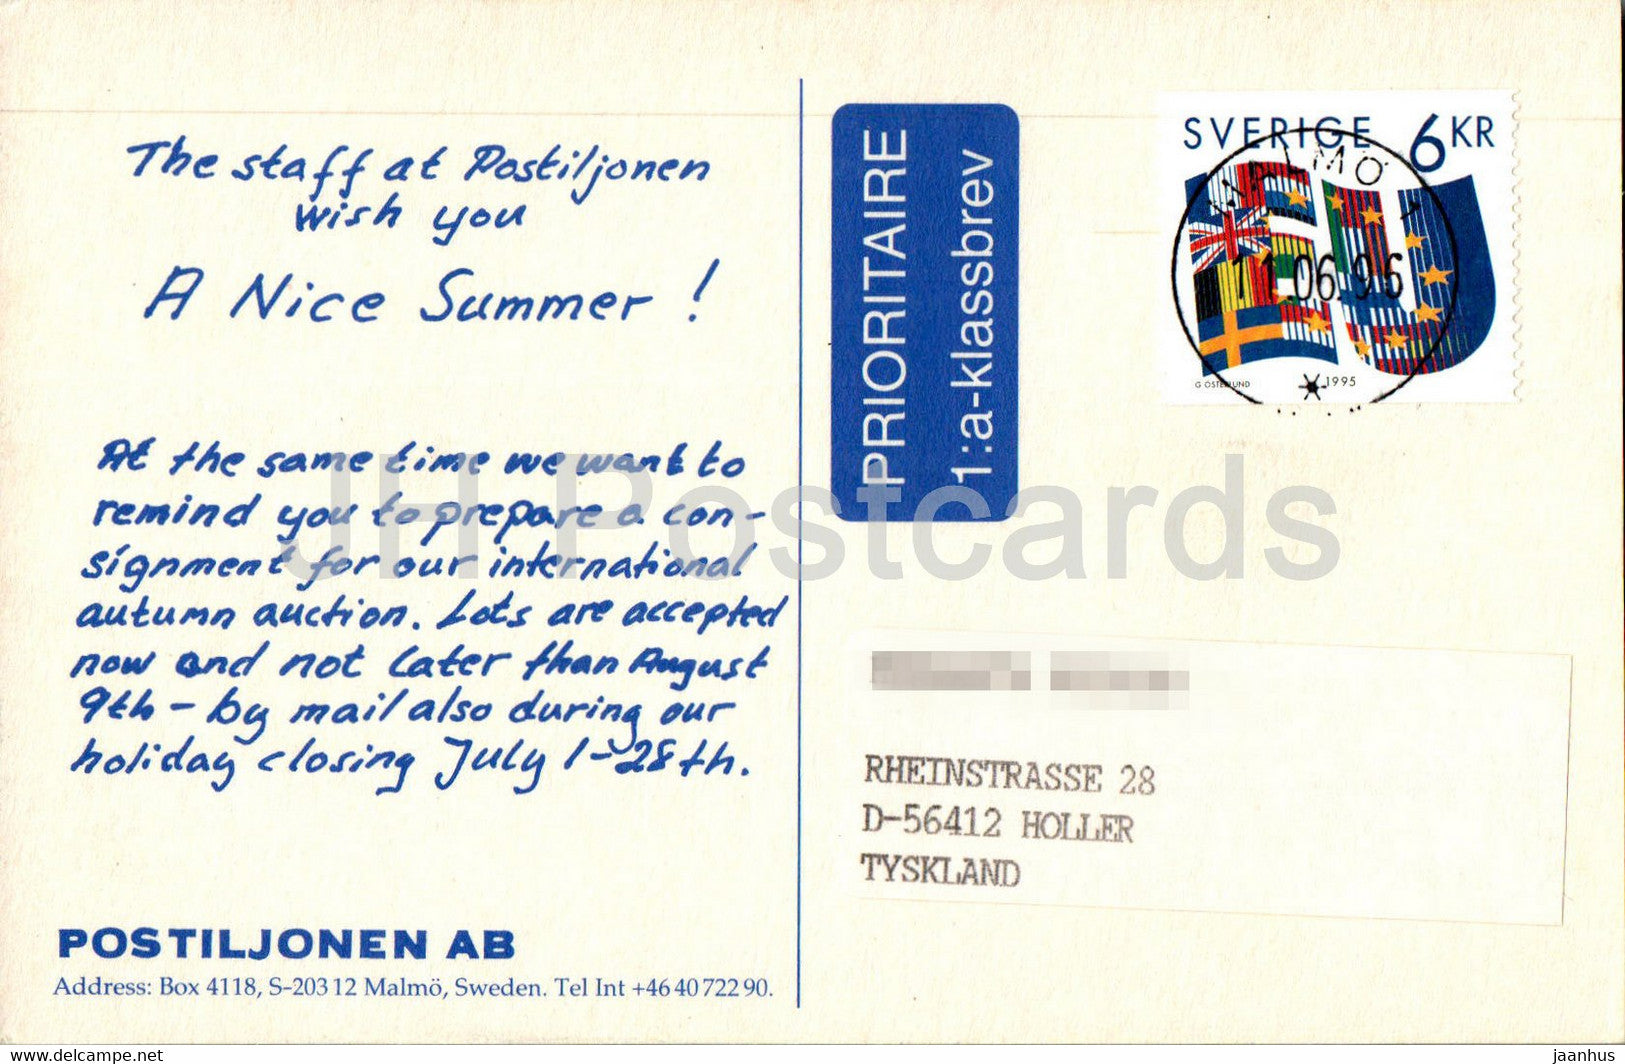 The staff at Postiljonen
wish you
A Nice Summer!
At the same time we want to
remind you to prepare a con-
signment for our international
autumn auction. Lots are accepted
now and not later than August
9th – by mail also during our
holiday closing July 1–28th.
POSTILJONEN AB
Address: Box 4118, S–203 12 Malmö, Sweden. Tel Int +46 40 722 90.
PRIORITAIRE
1:a-klassbrev
SVERIGE 6KR
MALMÖ 1
11.06.96
G ÖSTERLUND 1995
RHEINSTRASSE 28
D-56412 HOLLER
TYSKLAND
JH Postcards
www.delcampe.net
jaanhus